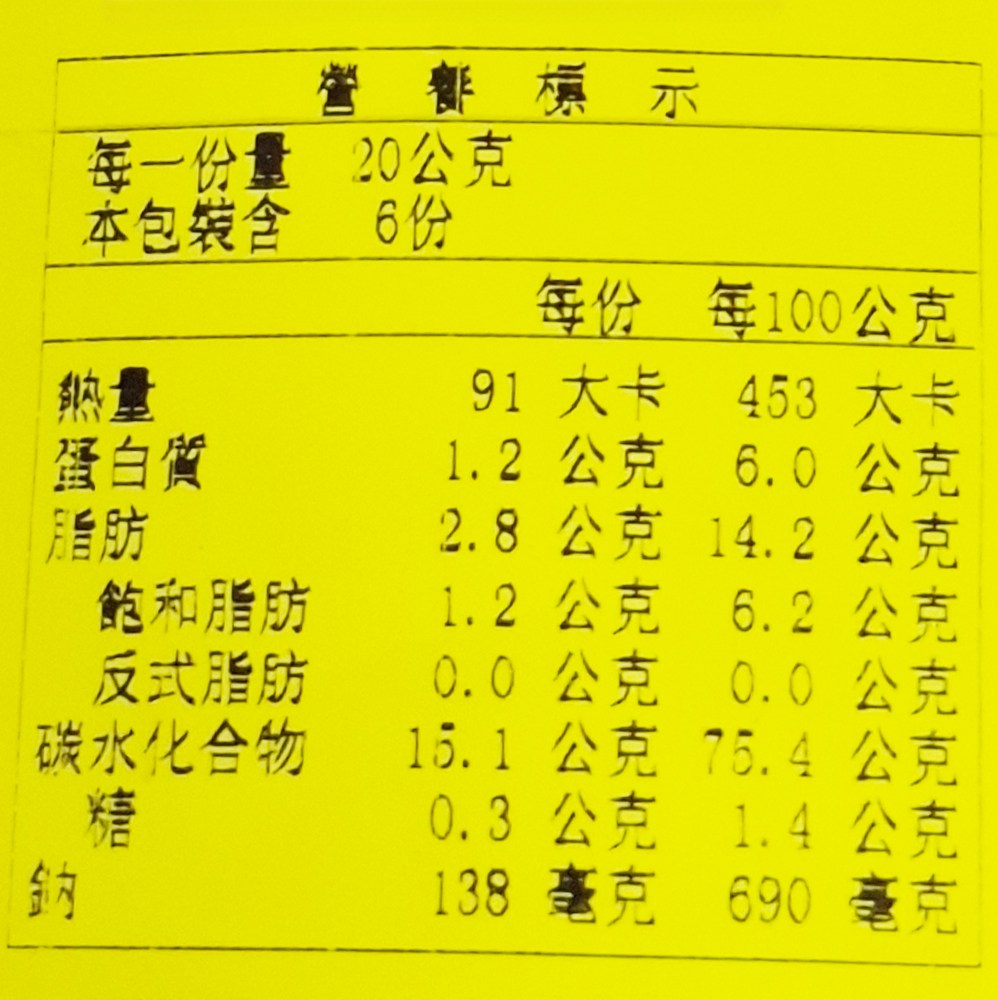 營養標示
每一份量 20公克
本包裝含 6份
每份 每100公克
熱量 91 大卡 453 大卡
蛋白質 1.2 公克 6.0 公克
脂肪 2.8 公克 14.2 公克
飽和脂肪 1.2 公克 6.2 公克
反式脂肪 0.0 公克 0.0 公克
碳水化合物 15.1 公克 75.4 公克
糖 0.3 公克 1.4 公克
鈉 138 毫克 690 毫克